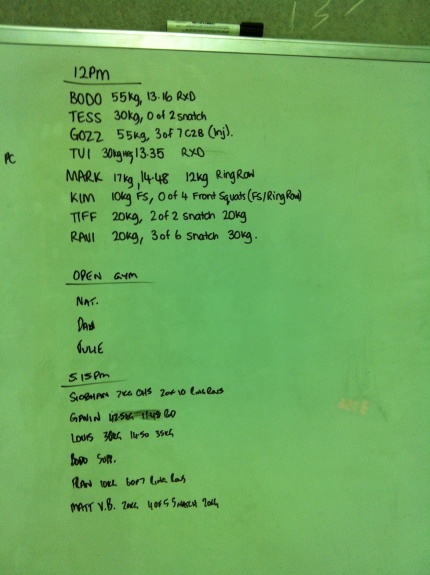 12PM
BODO 55kg, 13.16 RXD
TESS 30kg, 0 of 2 snatch
GOZZ 55kg, 3 of 7 C2B (Inj).
PC
TUI 30kg 13.35 RXD
MARK 17kg, 14.48 12kg Ring Row
KIM 10kg FS, 0 of 4 Front Squats (FS/Ring Row)
TIFF 20kg, 2 of 2 snatch 20kg
RAVI 20kg, 3 of 6 snatch 30kg.
OPEN GYM
NAT.
DAN
JULIE
5.15pm
SIOBHAN 7KG OHS 2 of 10 Ring Rows
GAVIN
LOUIS 30KG 14.50 35KG
BODO
10KG 6 of 7 Ring Rows
MATT V.B. 20KG 4 OF 5 SNATCH 20KG